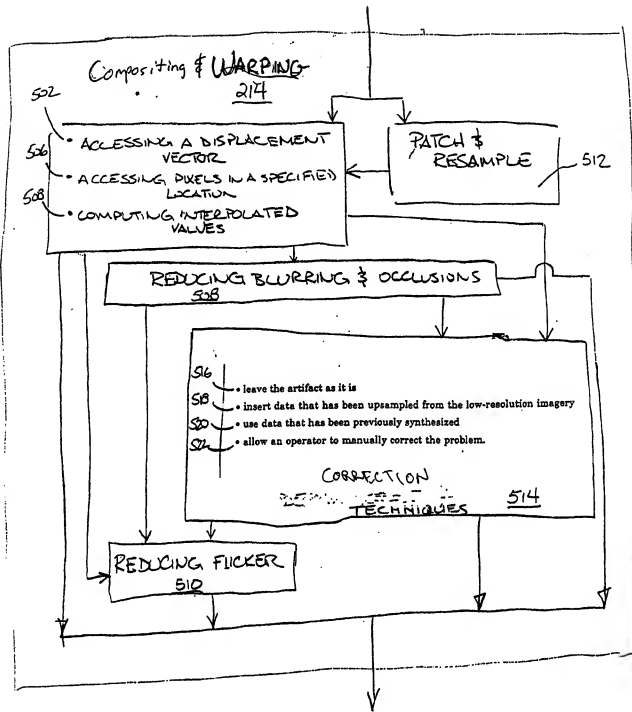 Compositing & WARPING
214
502
• ACCESSING A DISPLACEMENT
VECTOR
506
• ACCESSING PIXELS IN A SPECIFIED
LOCATION
508
• COMPUTING INTERPOLATED
VALUES
PATCH &
RESAMPLE
512
REDUCING BLURRING & OCCLUSIONS
508
516
• leave the artifact as it is
518
• insert data that has been upsampled from the low-resolution imagery
520
• use data that has been previously synthesized
522
• allow an operator to manually correct the problem.
CORRECTION
TECHNIQUES
514
REDUCING FLICKER
510